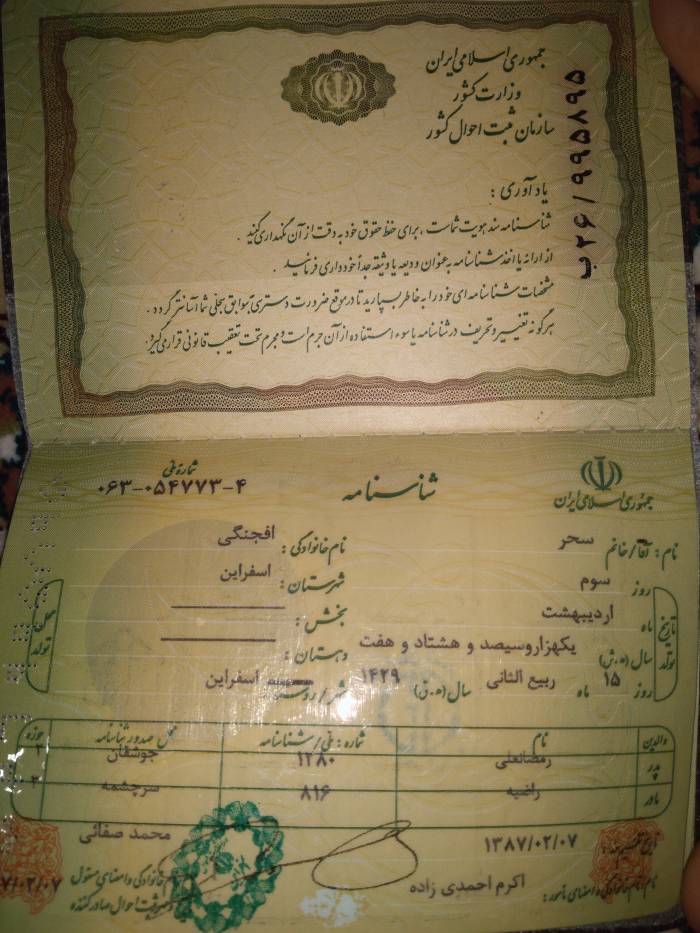 جمهوری اسلامی ایران
وزارت کشور
سازمان ثبت احوال کشور
ب۲۶/۹۹۵۸۹۵
یادآوری :
شناسنامه سند هویت شماست ، برای حفظ حقوق خود به دقت از آن نگهداری کنید .
از ارائه یا اخذ شناسنامه به عنوان ودیعه یا وثیقه جداً خودداری فرمائید .
مشخصات شناسنامه ای خود را به خاطر بسپارید تا در موقع ضرورت دسترسی به سوابق سجلی شما آسانتر گردد .
هرگونه تغییر و تحریف در شناسنامه یا سوء استفاده از آن جرم است و مجرم تحت تعقیب قانونی قرار می گیرد.
جمهوری اسلامی ایران
شناسنامه
شماره ملی
۰۶۳-۰۵۴۷۷۳-۴
نام : آقا/خانم سحر
نام خانوادگی : افجنگی
تاریخ تولد
روز سوم
ماه اردیبهشت
سال (ه.ش) یکهزاروسیصد و هشتاد و هفت
روز ۱۵ ماه ربیع الثانی سال (ه.ق) ۱۴۲۹
محل تولد
شهرستان : اسفراین
بخش :
دهستان :
شهر / روستا : اسفراین
والدین نام شماره : ملی / شناسنامه محل صدور شناسنامه حوزه
پدر رمضانعلی ۱۲۸۰ جوشقان ۲
مادر راضیه ۸۱۶ سرچشمه ۲
۱۳۸۷/۰۲/۰۷
محمد صفائی
نام ، نام خانوادگی و امضای مأمور : اکرم احمدی زاده
نام خانوادگی و امضای مسئول
ثبت احوال صادر کننده